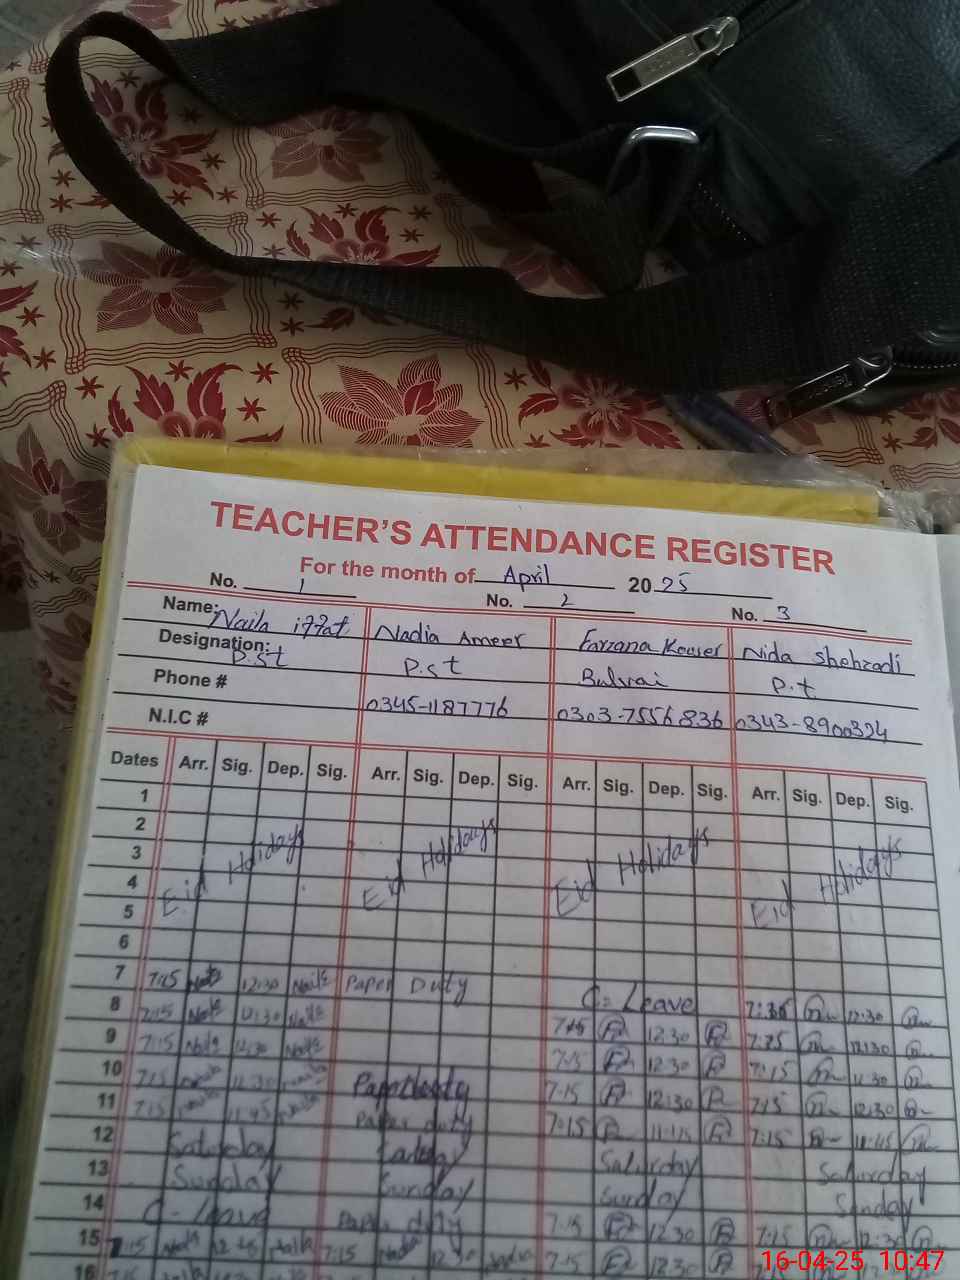 TEACHER'S ATTENDANCE REGISTER
For the month of April 2025
No. 1 No. 2 No. 3
Name: Naila iffat Nadia Ameer Farzana Kouser Nida Shehzadi
Designation: P.st P.st Bulvai P.t
Phone # 0345-1187776 0303-7556836 0343-8900324
N.I.C #
Dates Arr. Sig. Dep. Sig. Arr. Sig. Dep. Sig. Arr. Sig. Dep. Sig. Arr. Sig. Dep. Sig.
1
2
3 Eid Holidays Eid Holidays Eid Holidays Eid Holidays
4
5
6
7 7:15 Naila 12:30 Naila Paper Duty C- Leave 7:35 12:30
8 7:15 Naila 12:30 Naila 7:15 12:30 7:25 12:30
9 7:15 Naila 12:30 Naila 7:15 12:30 7:15
10 7:15 Naila Naila 7:15 12:30 7:15 12:30
11 7:15 Naila 11:45 Naila Paper duty 7:15 11:15 7:15 11:45
12 Saturday Saturday Saturday
13 Sunday Sunday Sunday Sunday
14 C- leave Paper duty 7:15 12:30 7:15 12:30
15 7:15 Naila Naila 7:15 Nadia 12:30 Nadia 7:15 12:30
16
16-04-25 10:47